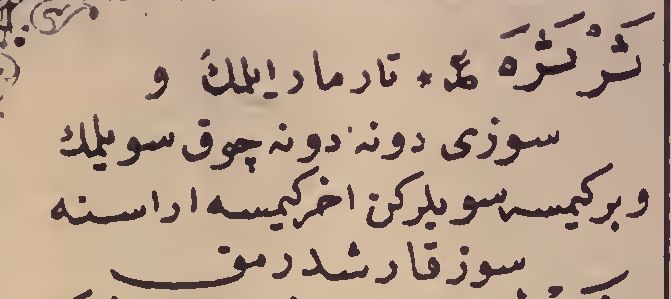 ثَرْثَرَه ع * تارمار ایلمك و
سوزی دونه دونه چوق سویلمك
و بر كیمسه سویلركن اخر كیمسه اراسنه
سوز قارشدرمق